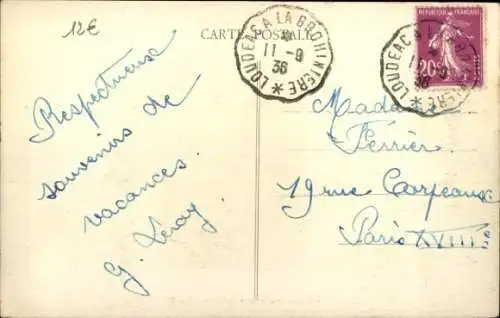 12€
CARTE POSTALE
LOUDEAC A LA BROHINIERE
11-9
36
REPUBLIQUE FRANÇAISE
20c
LOUDEAC A
36
Respectueux
souvenirs de
vacances.
G. Leroy.
Madame
Perrier
19 rue Carpeaux
Paris XVIII